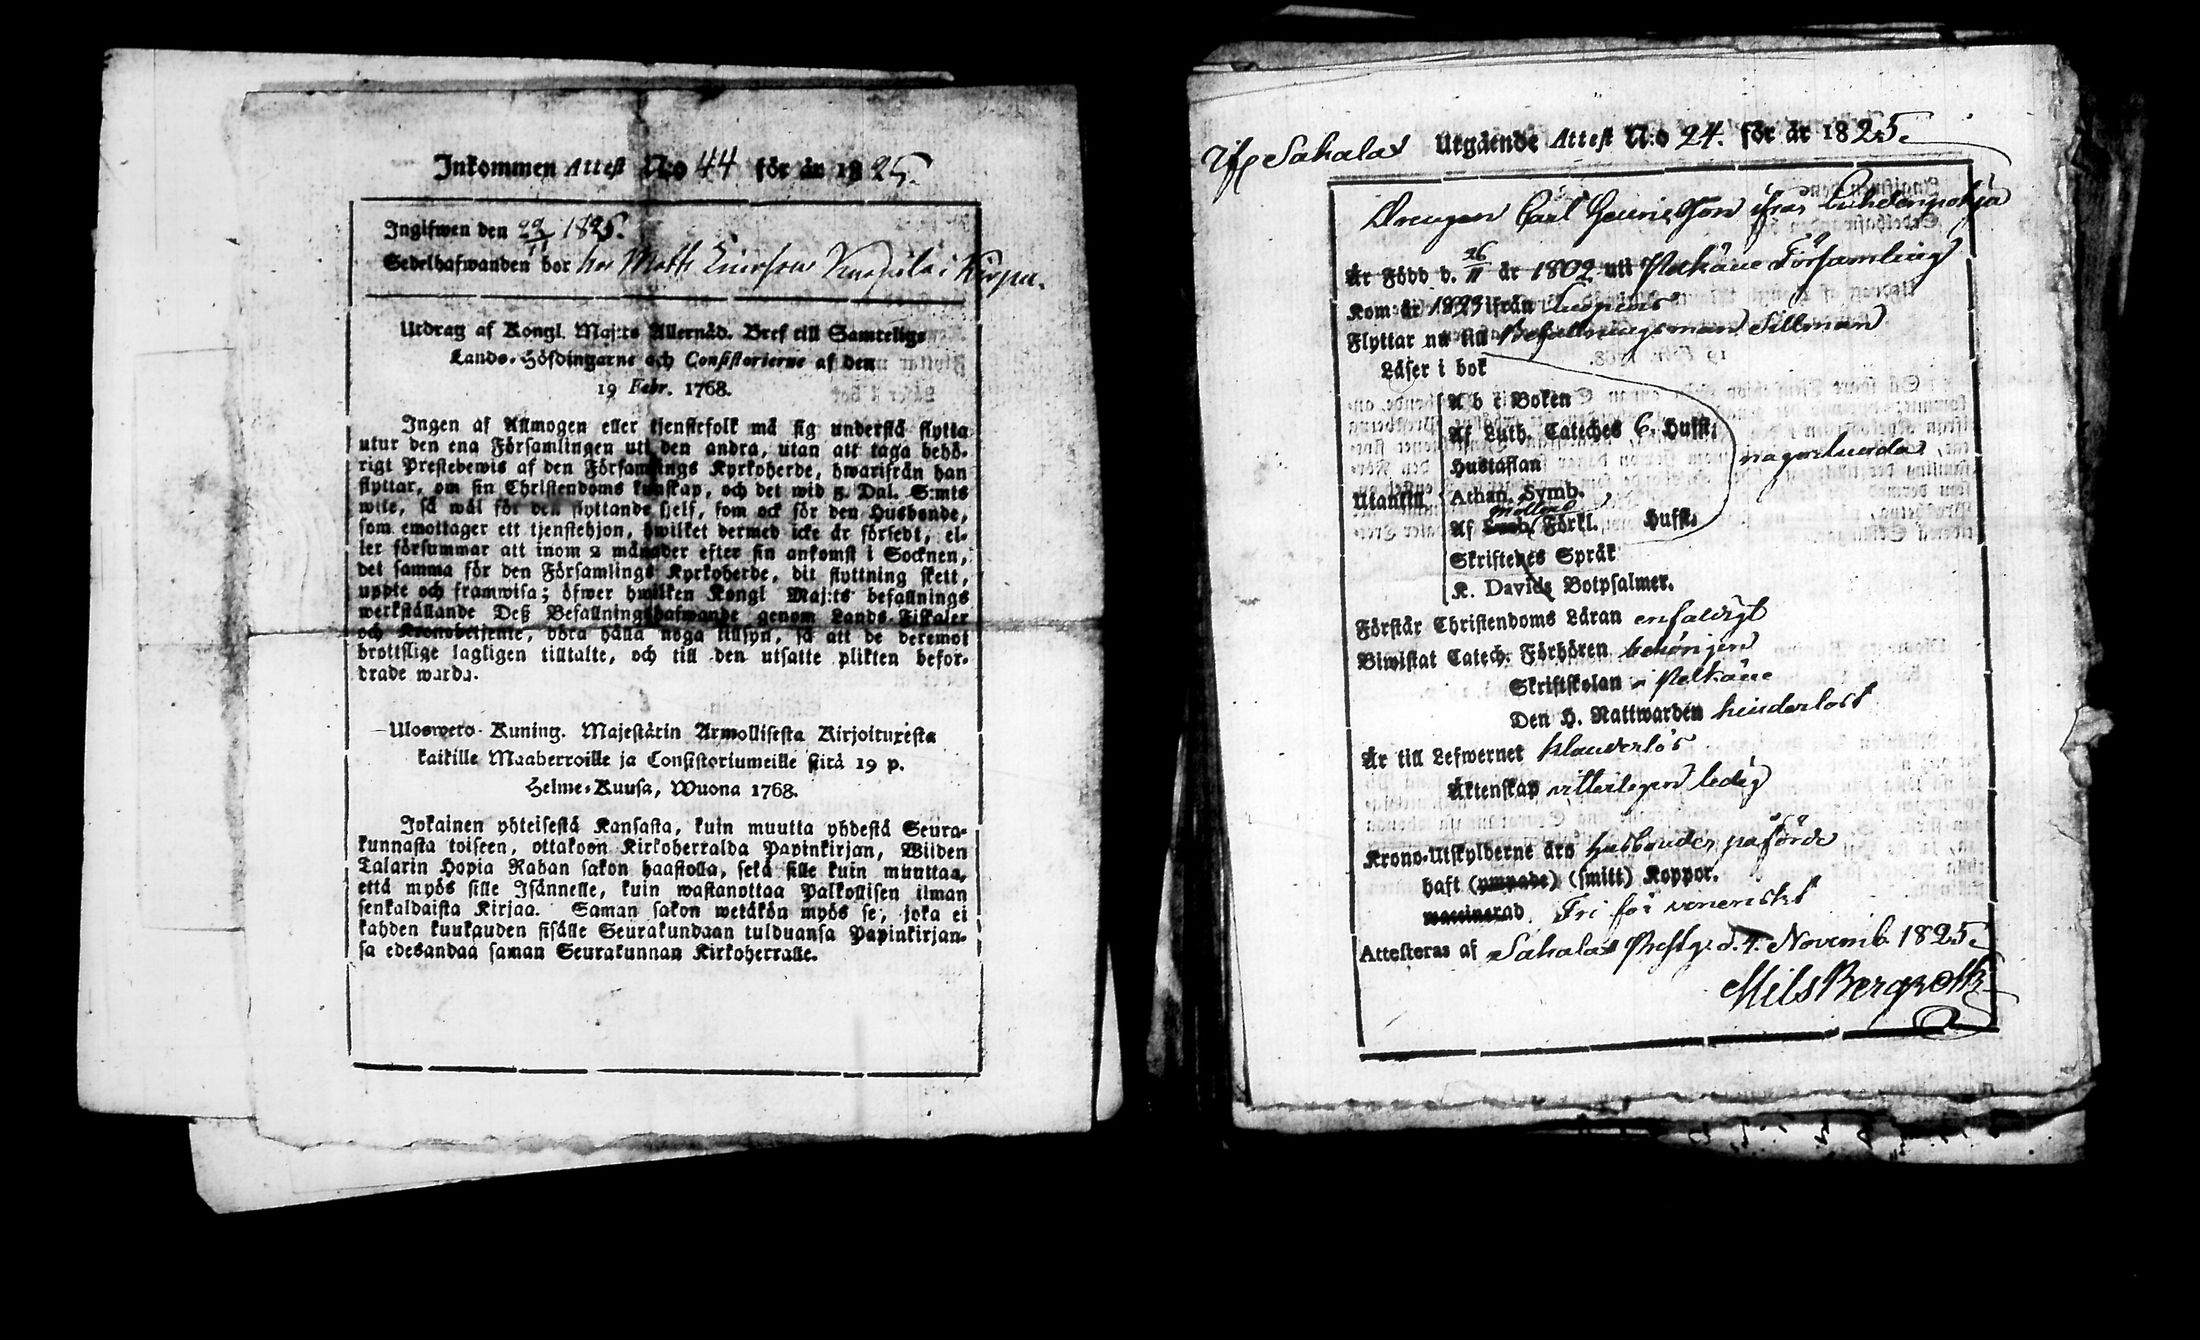 Inkommen Attest N:o 44 för år 1825.
Ingifwen den 29/11 1825.
Sedelhafwanden bor hos Matts i Kirpu.
Utdrag af Kongl. Maj:ts Allernåd. Bref till Samtelige
Lands-Höfdingarne och Consistorierne af den
19 Febr. 1768.
Ingen af Allmogen eller tjenstefolk må sig understå flytta
utur den ena Församlingen uti den andra, utan att taga behö-
rigt Prestebewis af den Församlings Kyrkoherde, hwarifrån han
flyttar, om sin Christendoms kunskap, och det wid 5. Dal. S:mts
wite, så wäl för den flyttande sjelf, som ock för den Husbonde,
som emottager ett tjenstehjon, hwilket dermed icke är försedt, el-
ler försummar att inom 2 månader efter sin ankomst i Socknen,
det samma för den Församlings Kyrkoherde, dit flyttning skett,
uppte och framwisa; öfwer hwilken Kongl Maj:ts befallnings
werkställande Deß Befallningshafwande genom Lands-Fiskaler
och Kronobetjente, böra hålla noga tillsyn, så att de deremot
brottslige lagligen tilltalte, och till den utsatte plikten befor-
drade warda.
Uloswero Kuning. Majestätin Armollisesta Kirjoituxesta
kaikille Maaherroille ja Consistoriumeille siitä 19 p.
Helme-Kuusa, Wuona 1768.
Jokainen yhteisestä Kansasta, kuin muutta yhdestä Seura-
kunnasta toiseen, ottakoon Kirkoherralda Papinkirjan, Wiiden
Talarin Hopia Rahan sakon haastolla, sekä sille kuin muuttaa,
että myös sille Isännelle, kuin wastanottaa Palkollisen ilman
senkaldaista Kirjaa. Saman sakon wetäkön myös se, joka ei
kahden kuukauden sisälle Seurakundaan tulduansa Papinkirjan-
sa edesandaa saman Seurakunnan Kirkoherralle.
Sahalax Utgående Attest N:o 24. för år 1825.
Drengen Carl Henricsson ifrån Luhdenpohja
Är Född d. 26/11 år 1802 uti Pelkäne Församling
Kom år 1823 ifrån
Flyttar nu till Befallningsman Sillman
Läser i bok
A b c Boken
Af Luth. Cateches 6. Hufst.
Hustaflan
någorlunda
Utantill Athan. Symb.
Af Förkl. Hufst.
Skriftenes Språk
K. Davids Botpsalmer.
Förstår Christendoms Läran enfaldigt
Biwistat Catech. Förhören behörigen
Skriftskolan i Pelkäne
Den H. Nattwarden hinderlöst
Är till Lefwernet klanderlös
Äktenskap witterligen ledig
Krono-Utskylderne äro husbonden påförde
haft (ympade) (smitt) Koppor.
waccinerad. Fri för veneriskt
Attesteras af Sahalax Prestg. d. 4. Novemb. 1825.
Nils Bergroth